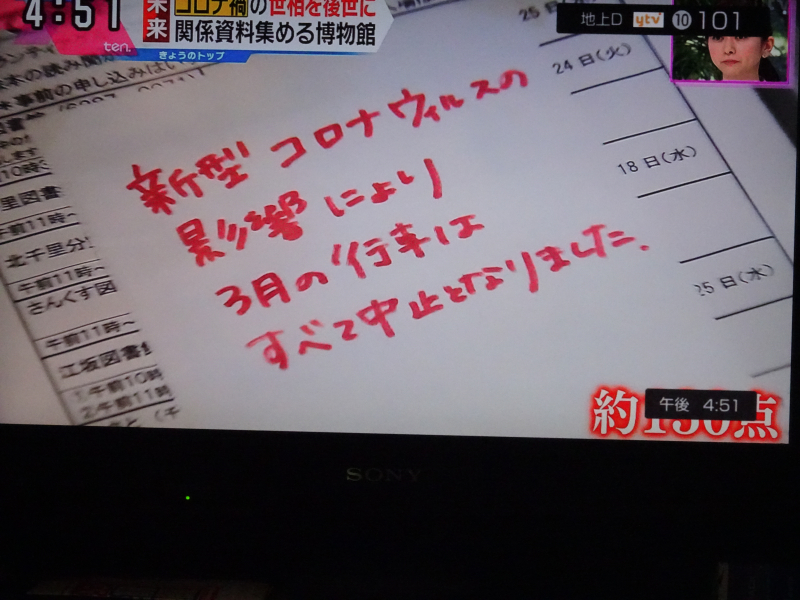 4:51
未来
コロナ禍の世相を後世に
関係資料集める博物館
ten.
きょうのトップ
地上D ytv 10 101
24日(火)
18日(水)
25日(水)
新型コロナウィルスの
影響により
3月の行事は
すべて中止となりました.
里図書
午前11時~
北千里分
午前11時~
さんくす図
午前11時~
江坂図書
1午前10時
2午前11時
約150点
午後 4:51
SONY